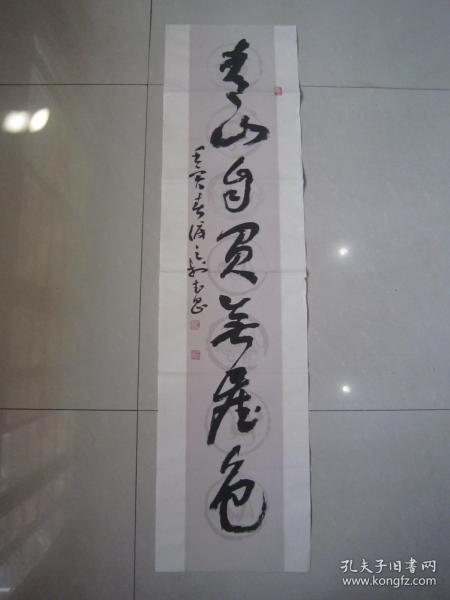 青山自負無塵色
壬寅春
孔夫子旧书网
www.kongfz.com